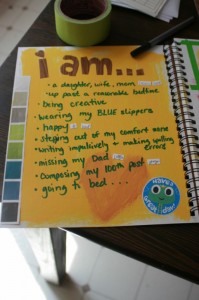 i am...
• a daughter, wife, mum
• up past a reasonable bedtime
• being creative
• wearing my BLUE slippers
• happy
• stepping out of my comfort zone
• writing impulsively + making spelling
errors
• missing my Dad
• composing my 100th post
• going to bed...
HAVE A
day!